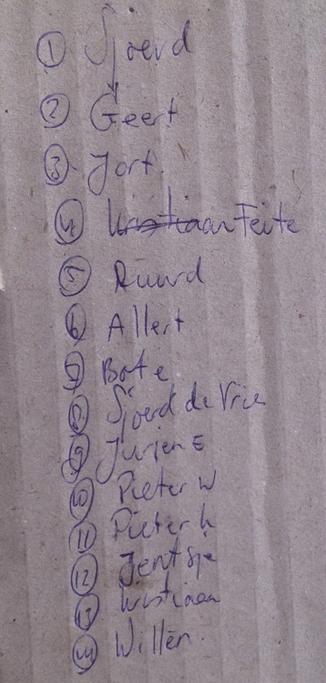 1 Sjoerd
2 Geert
3 Jort
4 Kristiaan Feite
5 Ruurd
6 Allert
7 Bote
8 Sjoerd de Vries
9 Jurjen E
10 Pieter W
11 Pieter h
12 Jentsje
13 Kristiaan
14 Willem